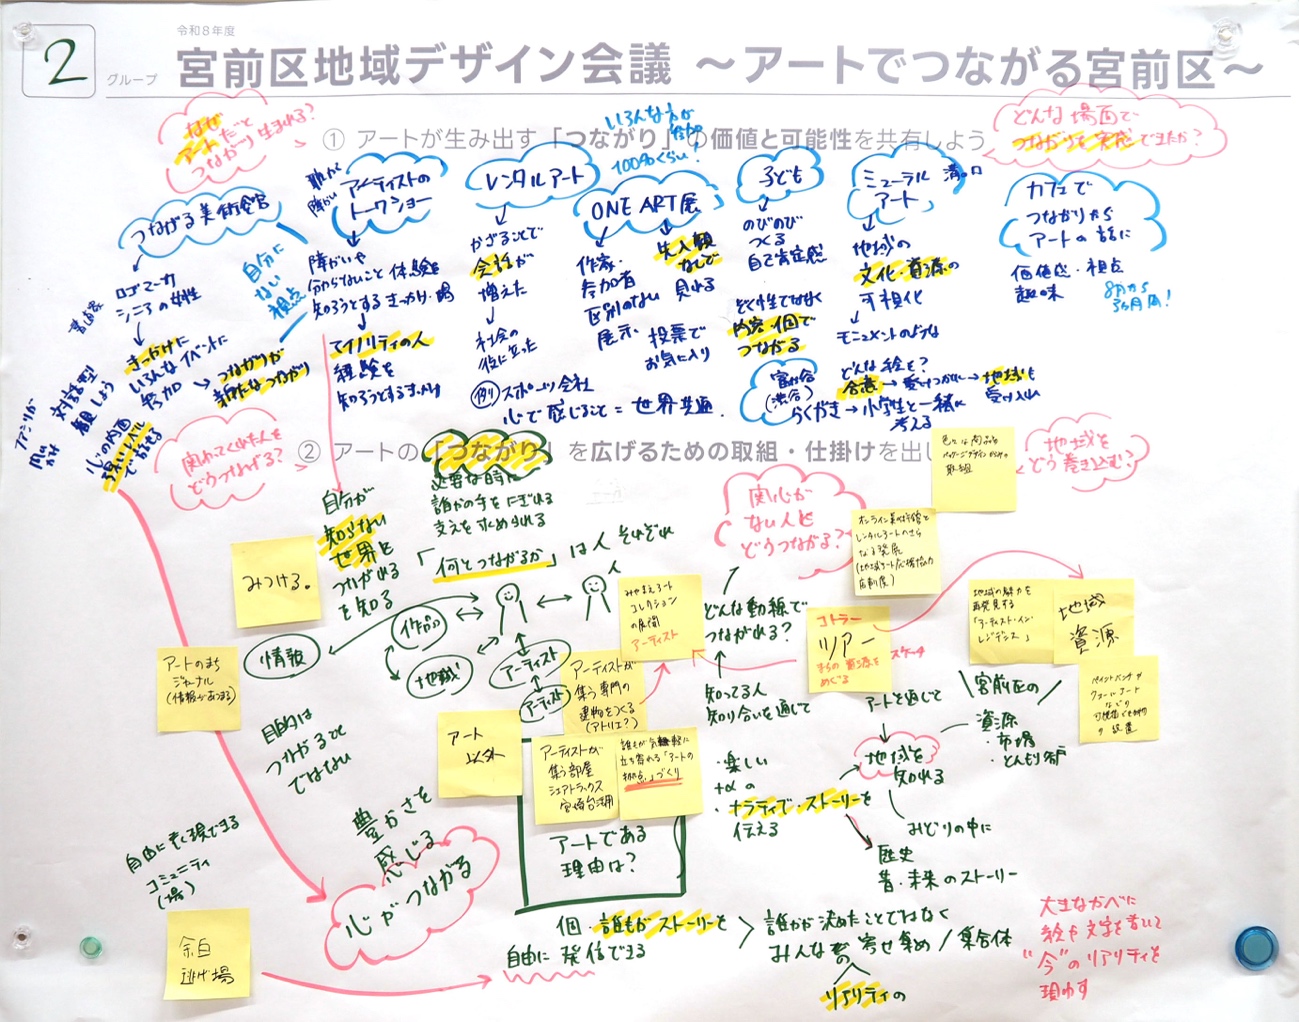 2
グループ
令和8年度
宮前区地域デザイン会議 ～アートでつながる宮前区～
① アートが生み出す「つながり」の価値と可能性を共有しよう
なぜ
アートだと
つながり生まれる?
どんな場面で
つながりを実感できたか?
つながる美術館
ロゴマーク
シニアの女性
きっかけに
いろんなイベントに
参加
つながりが
新たなつながり
自分に
ない
視点
対話型
鑑賞しよう
心の内面
深いレベル
でっながる
アーティストの
トークショー
障がいや
分からないこと 体験を
知ろうとするきっかけ・場
マイノリティの人
経験を
知ろうとするきっかけ
レンタルアート
かざることで
会話が
増えた
社会の
役に立った
例) スポーツ会社
心で感じること=世界共通
いろんな方が
参加
100%くらい!
ONE ART展
作家・
参加者
区別のない
展示
先入観
なしで
見れる
投票で
お気に入り
子ども
のびのび
つくる
自己肯定感
どく性でなく
内容・個で
つながる
ミューラル
アート
溝の口
地域の
文化・資源の
可視化
モニュメントのような
どんな絵を?
合意→受けつがれ→地域も
受け入れ
らくがき→小学生と一緒に
考える
カフェで
つながりから
アートの話に
価値感・視点
趣味
② アートの「つながり」を広げるための取組・仕掛けを出し
関わってくれた人を
どうつなげる?
地域を
どう巻き込む?
関心が
ない人と
どうつながる?
必要な時に
誰かの手をにぎれる
支えを求められる
「何とつながるか」は人それぞれ
自分が
知らない
世界と
つながれる
を知る
みつける。
情報
作品
地域
アーティスト
アーティスト
アートのまち
ジャーナル
(情報が集まる)
目的は
つながること
ではない
アート
以外
アーティストが
集う専門の
建物をつくる
(アトリエ?)
アーティストが
集う部屋
シェアトラックス
宮崎台活用
誰もが気軽に
立ち寄れる「アートの
拠点」づくり
みやまえアート
コレクション
の展開
アーティスト
どんな動線で
つながれる?
知ってる人
知り合いを通じて
オンライン美術館と
レンタルアートのさら
なる発展
(地域アート応援協力
店制度)
色々な商品を
パッケージデザインからの
取組
コトラー
ツアー
まちの資源を
めぐる
スケッチ
地域の魅力を
再発見する
「アーティスト・イン・
レジデンス」
地域
資源
アートを通じて
地域を
知れる
宮前区の
資源
・市場
・とんもり谷戸
みどりの中に
歴史
昔・未来のストーリー
・楽しい
+αの
・ナラティブ・ストーリーを
伝える
アートである
理由は?
豊かさを
感じる
心がつながる
自由に表現できる
コミュニティ
(場)
余白
逃げ場
個・誰もがストーリーを
自由に発信できる
誰かが決めたことではなく
みんなの寄せ集め/集合体
リアリティの
大きなかべに
絵や文字を書いて
"今"のリアリティを
現わす